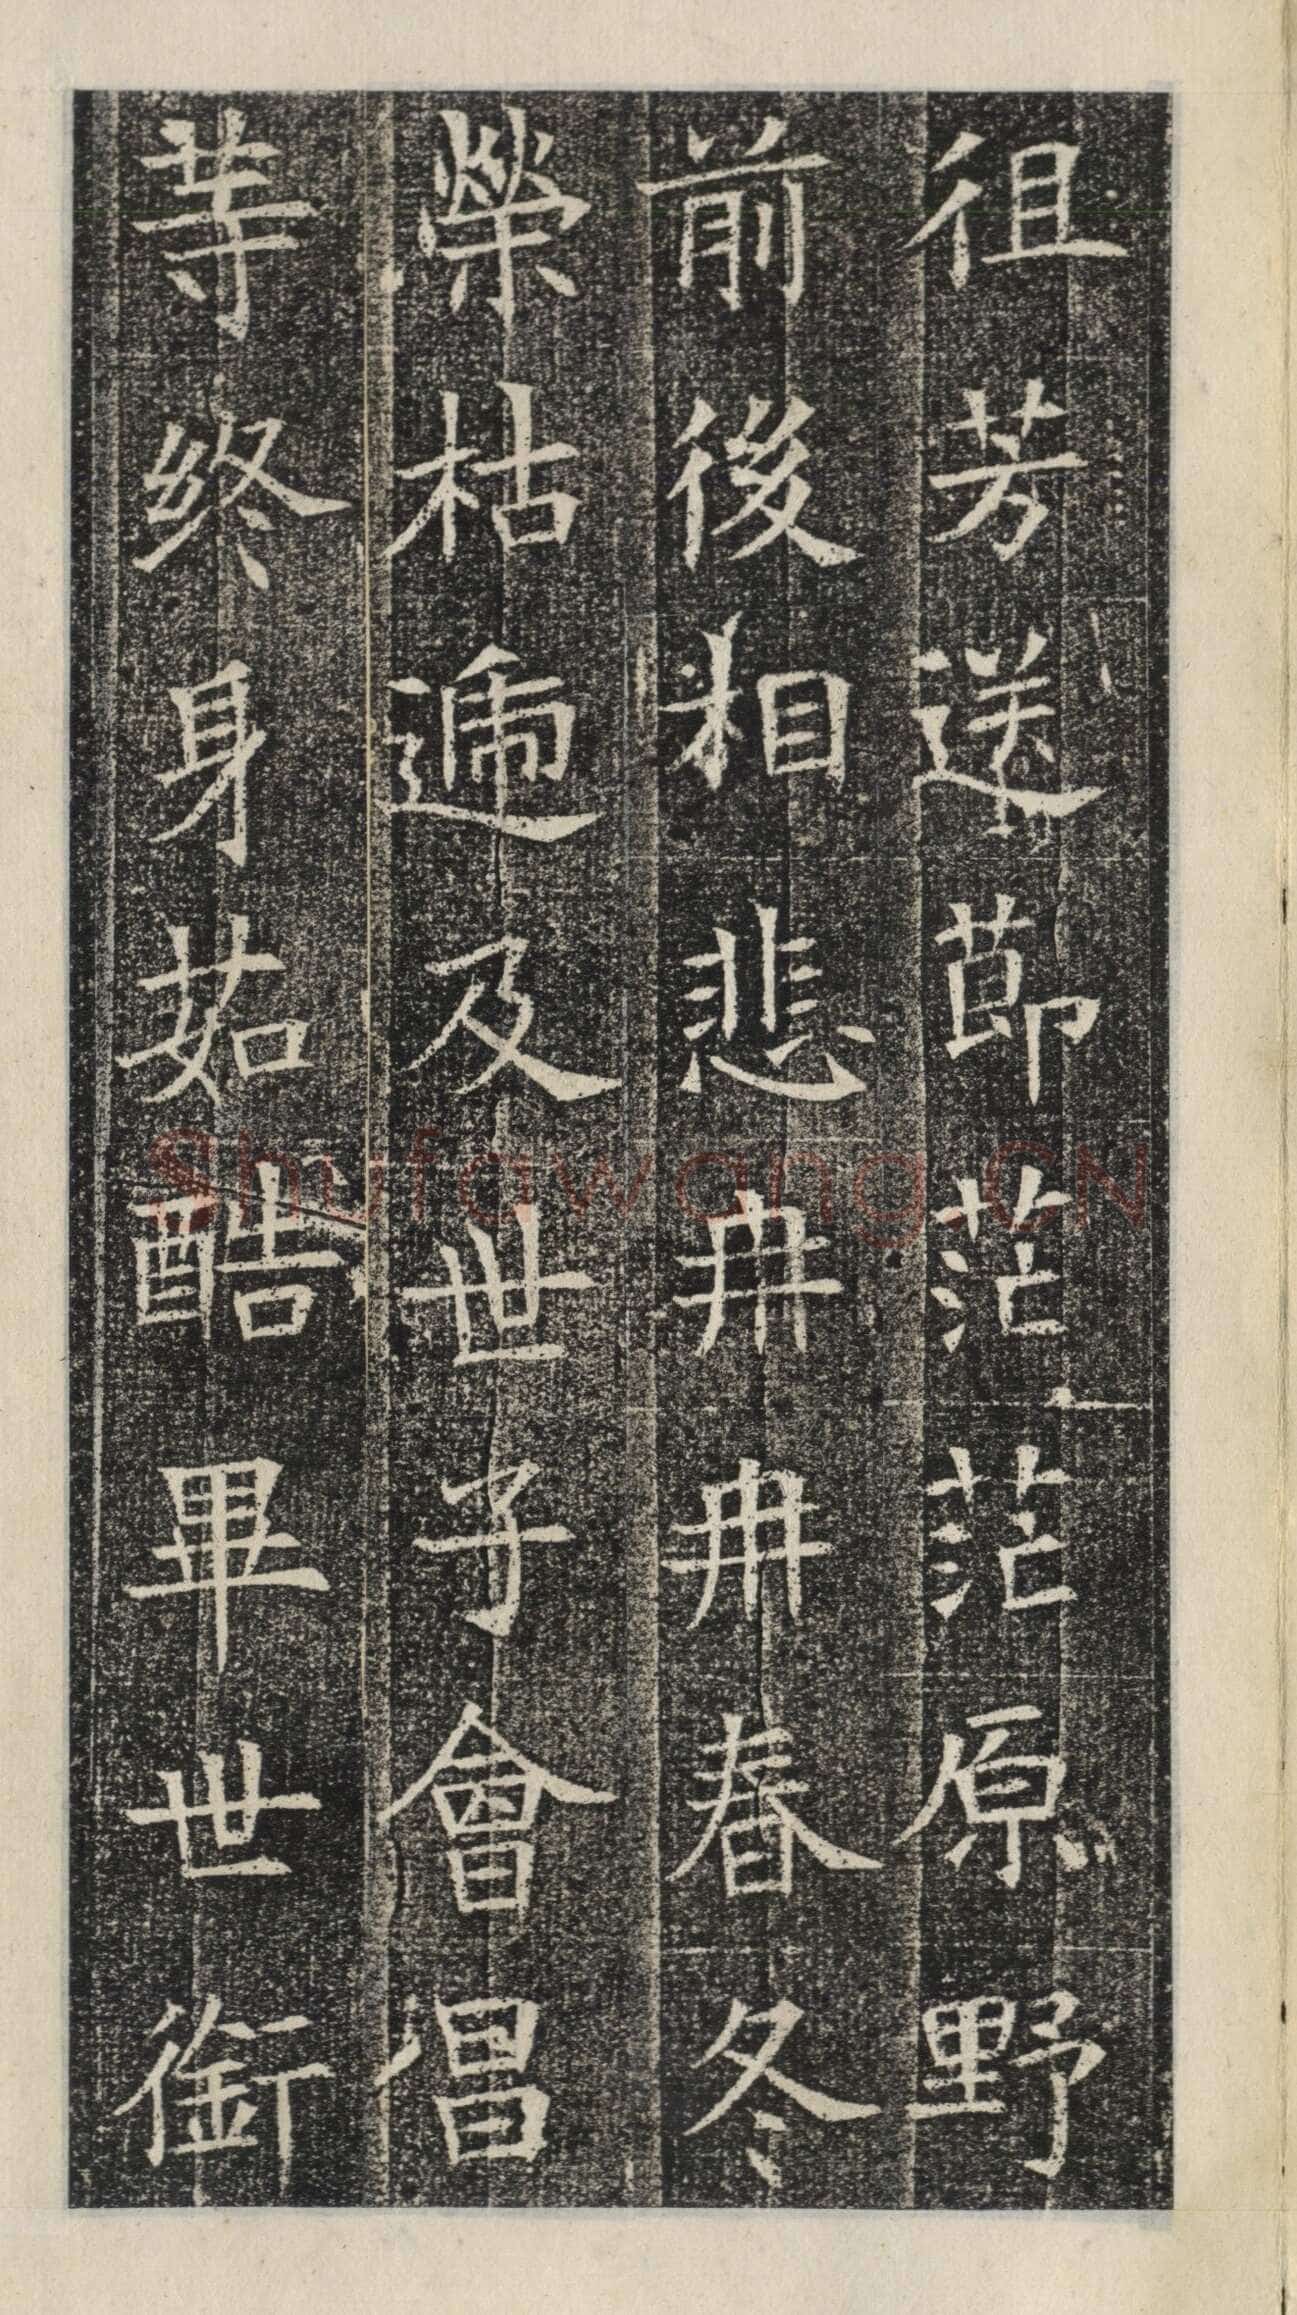 徂芳送節茫茫原野
前後相悲冉冉春冬
榮枯遞及世子會昌
等終身茹酷畢世銜
Shufawang.CN